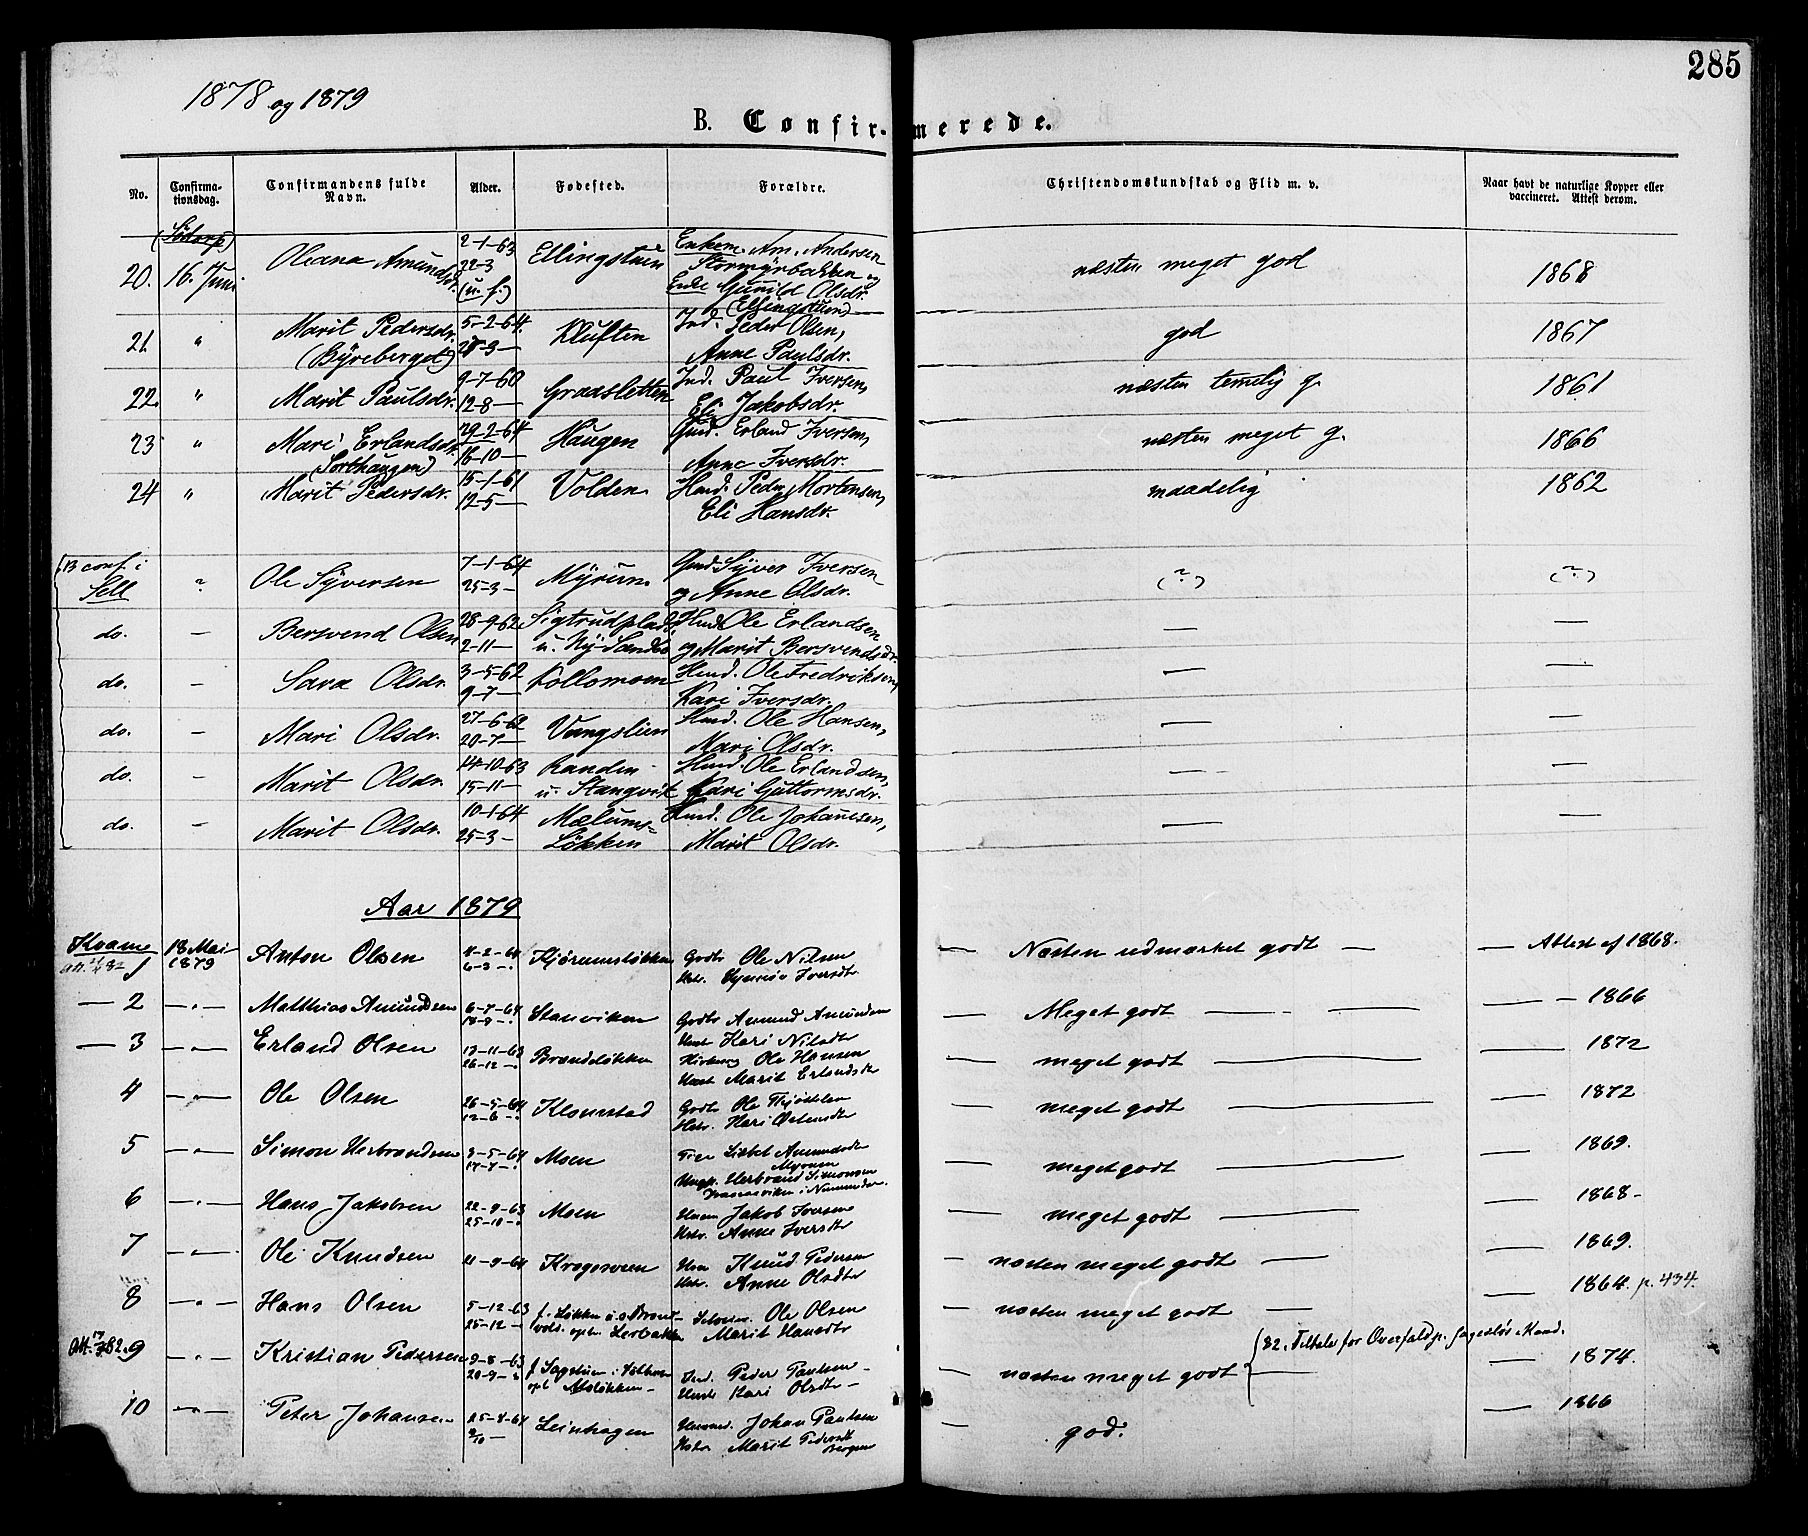 285
1878 og 1879
B. Confirmerede.
No. Confirmationsdag. Confirmandens fulde Navn. Alder. Fødested. Forældre. Christendomskundskab og Flid m. v. Naar havt de naturlige Kopper eller vaccineret. Attest derom.
(Sødorp)
20. 16. Juni Oleana Amundsdr. 2-1-63 22-3 (u. f.) Ellingstuen Enkem. Am. Andersen Stormyrbakken og Enke Gunild Olsdr. (Ellingstuen) næsten meget god 1868
21. " Marit Pedersdr. (Byreberget) 5-2-64. 28-3— Kluften Ind. Peder Olsen, Anne Paulsdr. god 1867
22. " Marit Paulsdr. 9-7-60 12-8— Graasletten Ind. Paul Iversen, Eli Jakobsdr. næsten temelig g. 1861
23 " Mari Erlandsdr. (Sorthaugen) 29-2-64 16-10— Haugen Gmd. Erland Iversen, Anne Iversdr. næsten meget g. 1866
24 " Marit Pedersdr. 15-1-61 12-5— Volden Hmd. Peder Mortensen, Eli Hansdr. maadelig 1862
13 conf. i Sell ? Ole Syversen 7-1-64 25-3— Myrum Gmd. Syver Iversen og Anne Olsdr. (?) (?)
do. — Bersvend Olsen 28-9-62 2-11— Sigtrudplads u. Ny-Sandbo Hmd. Ole Erlandsen og Marit Bersvendsdr. — —
do. — Sara Olsdr. 3-5-62 9-7— Kollomoen Hmd. Ole Fredriksen, Kari Iversdr. — —
do. — Mari Olsdr. 27-6-62 20-7— Vangslien Hmd. Ole Hansen, Mari Olsdr. — —
do. — Marit Olsdr. 14-10-63 15-11— Randen u. Stangvik Hmd. Ole Erlandsen, Kari Guttormsdr. — —
do. — Marit Olsdr. 10-1-64 25-3— Mælumsløkken Hmd. Ole Johannesen, Marit Olsdr. — —
Aar 1879
Kvame
1 18 Mai 1879 Anton Olsen 4-2-64 6-3— Kjørumsløkken Godtr Ole Nilsen Hstr. Iversdtr — Næsten udmærket godt — — Attest af 1868.
— 2 —"— Matthias Amundsen 6-7-64 Stanviken Godtr Amund Amundsen Hust Kari Nilsdtr — Meget godt — — 1866
— 3 —"— Erland Olsen 13-11-63 26-12— Brandsløkken Ole Hansen Hust Marit Erlandsdtr — meget godt — — 1872
4 —"— Ole Olsen 26-5-64 12-6— Klomstad Godtr Ole Hstr. Kari — meget godt — — 1872
5 —"— Simon Herbrandsen 3-5-64 17-7— Moen Pige Lisbet Amundsdtr Myrum Ungk. Herbrand Simonsen — meget godt — — 1869.
6 —"— Hans Jakobsen 22-9-63 25-10— Moen Jakob Iversen Hstr. Anne Iversdtr — meget godt — — 1868-
7 —"— Ole Knudsen 21-9-64 Krogsveen Knud Pedersen Hstr. Anne Olsdtr — næsten meget godt — — 1869.
8 —"— Hans Olsen 5-12-63 25-12— f. Løkken u. opdr. Ole Olsen Marit Hansdtr — næsten meget godt — — 1864. p. 434.
9 —"— Kristian Pedersen 9-8-63 20-9— f. Sagstuen i opl Moløkken Ind. Peder Paulsen Hustr Kari Olsdtr — næsten meget godt — 82. Tiltale for Overfald p. sagesløs Mand. — 1874.
10 —"— Peter Johansen 25-4-64 Leinhagen Johan Paulsen Hstr Marit Pedersdt Bergum — god. — 1866